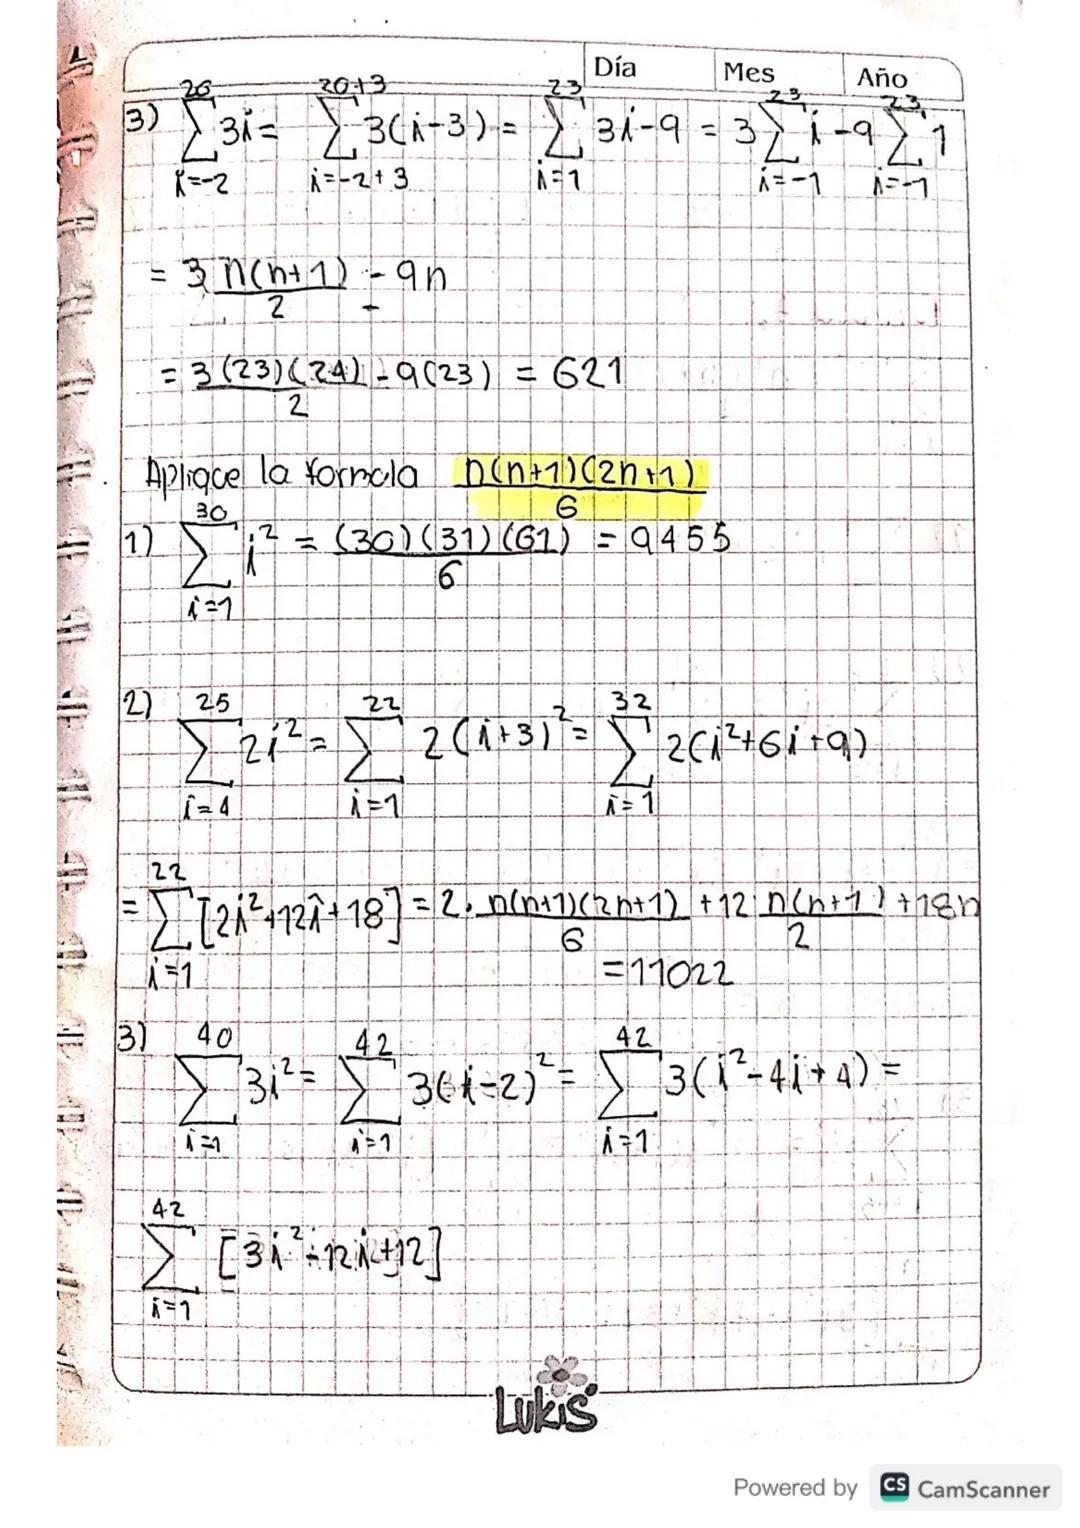 Día Mes Año
3) \sum_{i=-2}^{20} 3i = \sum_{i=-2+3}^{20+3} 3(i-3) = \sum_{i=1}^{23} 3i-9 = 3\sum_{i=-1}^{23} i - 9\sum_{i=-1}^{23} 1
= 3 \frac{n(n+1)}{2} - 9n
= \frac{3(23)(24)}{2} - 9(23) = 621
Aplique la formula \frac{n(n+1)(2n+1)}{6}
1) \sum_{i=1}^{30} i^2 = \frac{(30)(31)(61)}{6} = 9455
2) \sum_{i=4}^{25} 2i^2 = \sum_{i=1}^{22} 2(i+3)^2 = \sum_{i=1}^{32} 2(i^2+6i+9)
= \sum_{i=1}^{22} [2i^2+12i+18] = 2. \frac{n(n+1)(2n+1)}{6} + 12 \frac{n(n+1)}{2} + 18n
= 11022
3) \sum_{i=1}^{40} 3i^2 = \sum_{i=1}^{42} 3(i-2)^2 = \sum_{i=1}^{42} 3(i^2-4i+4) =
\sum_{i=1}^{42} [3i^2-12i+12]
Lukis
Powered by CS CamScanner